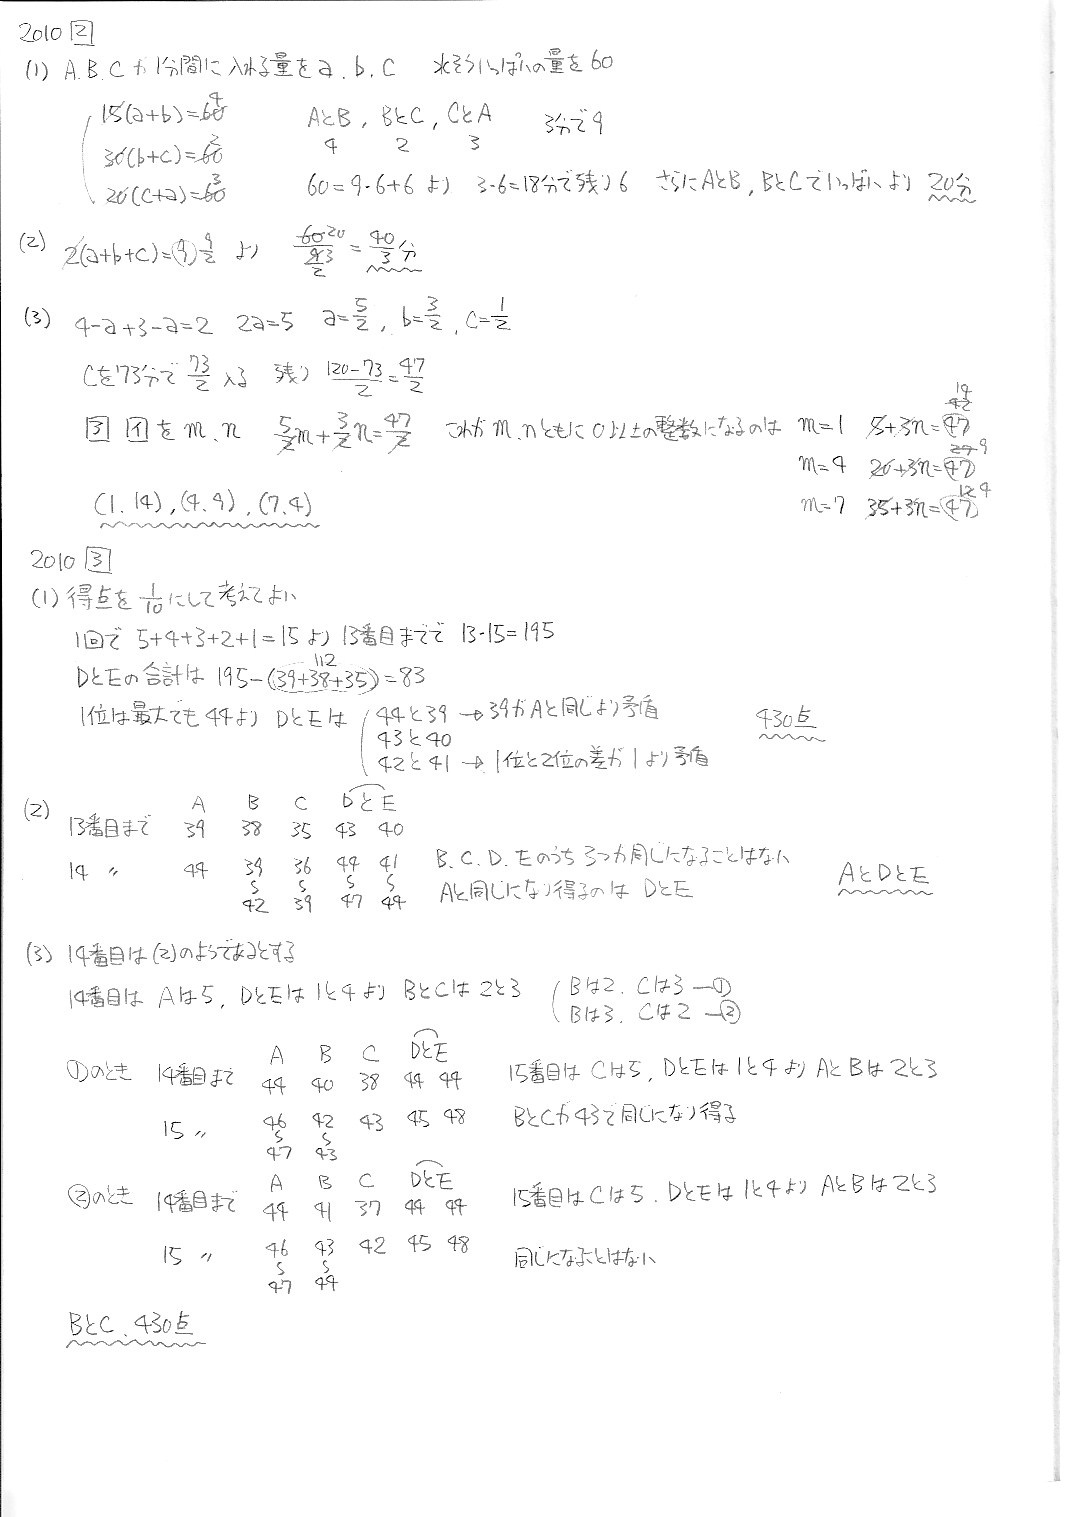 2010 2
(1) A.B.Cが1分間に入れる量をa.b.c 水そういっぱいの量を60
15(a+b)=60 4 AとB, BとC, CとA 3分で9
30(b+c)=60 2 4 2 3
20(c+a)=60 3 60=9·6+6より 3·6=18分で残り6 さらにAとB, BとCでいっぱいより 20分
(2) 2(a+b+c)=9 9/2 より 60/(9/2) 20 3 = 40/3分
(3) 4-a+3-a=2 2a=5 a=5/2, b=3/2, c=1/2
Cを73分で 73/2 入る 残り (120-73)/2=47/2
ア イをm.n 5/2m+3/2n=47/2 これがm.nともに0以上の整数になるのは m=1 5+3n=47 42 14
m=4 20+3n=47 27 9
m=7 35+3n=47 12 4
(1.14),(4.9),(7.4)
2010 3
(1) 得点を1/10にして考えてよい
1回で 5+4+3+2+1=15より 13番目までで 13·15=195
DとEの合計は 195-(39+38+35)=83 112
1位は最大でも44より DとEは 44と39 →39がAと同じより矛盾 430点
43と40
42と41 →1位と2位の差が1より矛盾
(2) A B C DとE
13番目まで 39 38 35 43 40
14 〃 44 39 36 44 41 B.C.D.Eのうち3つが同じになることはない
S S S S Aと同じになり得るのは DとE AとDとE
42 39 47 44
(3) 14番目は(2)のようであるとする
14番目は Aは5, DとEは1と4より BとCは2と3 Bは2. Cは3 —①
Bは3. Cは2 —②
A B C DとE
①のとき 14番目まで 44 40 38 44 44 15番目は Cは5, DとEは1と4より AとBは2と3
15 〃 46 42 43 45 48 BとCが43で同じになり得る
S S
47 43
A B C DとE
②のとき 14番目まで 44 41 37 44 44 15番目はCは5. DとEは1と4より AとBは2と3
15 〃 46 43 42 45 48 同じになることはない
S S
47 44
BとC. 430点